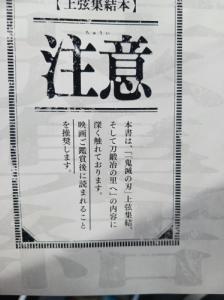 【上弦集結本】
ちゅうい
注意
本書は、「「鬼滅の刃」上弦集結、
そして刀鍛冶の里へ」の内容に
深く触れております。
映画ご鑑賞後に読まれること
を推奨します。